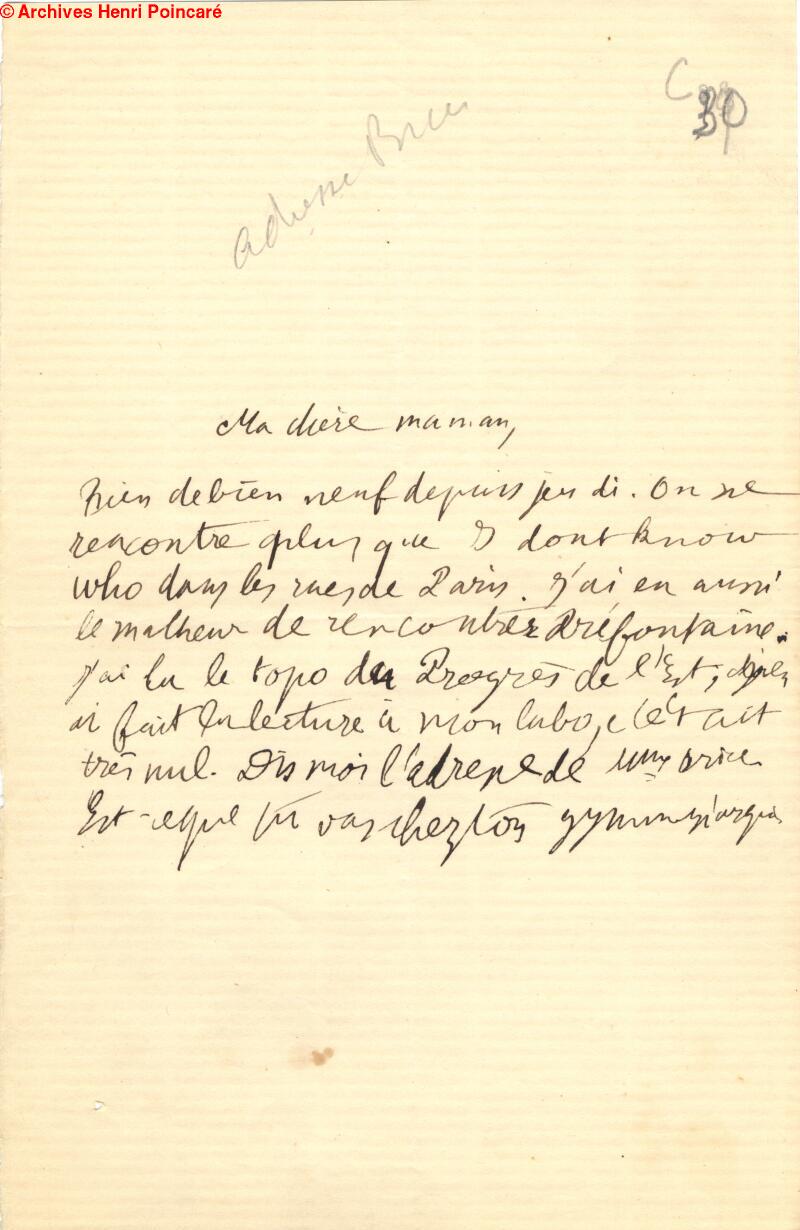 © Archives Henri Poincaré
30
adresse Brice
Ma chère maman,
Rien de bien neuf depuis jeudi. On ne
rencontre plus que I dont know
who dans les rues de Paris. J'ai eu aussi
le malheur de rencontrer Préfontaine.
J'ai lu le topo du Progrès de l'Est, j'en
ai fait la lecture à mon labo, c'était
très nul. Dis moi l'adresse de Mme Brice
Est-ce que tu vas chez ton